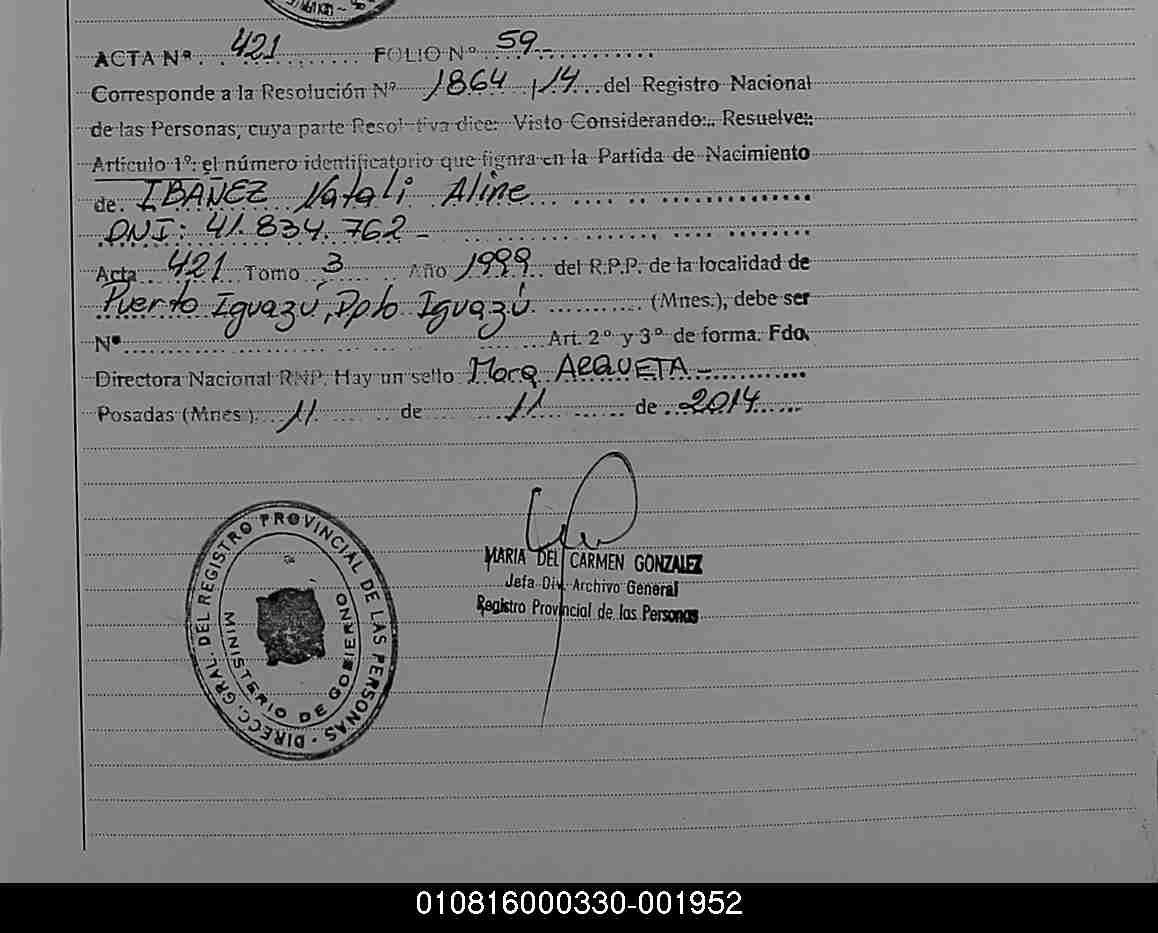 ACTA Nº 421 FOLIO Nº 59-
Corresponde a la Resolución Nº 1864/14 del Registro Nacional
de las Personas, cuya parte Resolutiva dice: Visto Considerando:.. Resuelve:
Artículo 1º: el número identificatorio que figura en la Partida de Nacimiento
de. IBAÑEZ Natali Aline
DNI: 41.834.762-
Acta 421 Tomo 3 Año 1999 del R.P.P. de la localidad de
Puerto Iguazú, Dpto Iguazú (Mnes.), debe ser
Nº Art. 2º y 3º de forma. Fdo.
Directora Nacional RNP. Hay un sello Mora ARQUETA-
Posadas (Mnes.) 11 de 11 de 2014
DIRECC. GRAL. DEL REGISTRO PROVINCIAL DE LAS PERSONAS -
MINISTERIO DE GOBIERNO
MARIA DEL CARMEN GONZALEZ
Jefa Div. Archivo General
Registro Provincial de las Personas
010816000330-001952